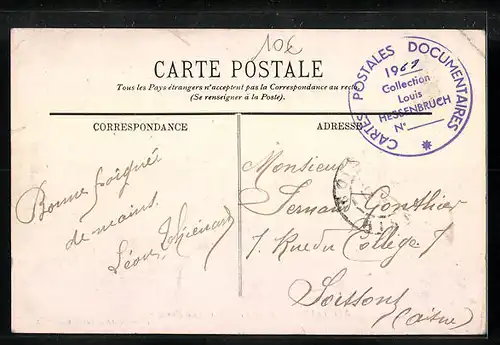 10€
CARTE POSTALE
Tous les Pays étrangers n'acceptent pas la Correspondance au recto
(Se renseigner à la Poste).
CORRESPONDANCE
ADRESSE
CARTES POSTALES DOCUMENTAIRES
1962
Collection
Louis
HESSENBRUCH
N°
Bonne poignée
de mains.
Léon Thiénard
Monsieur
Fernand Gonthier
7. Rue du Collège 7
Soissons
(Aisne)